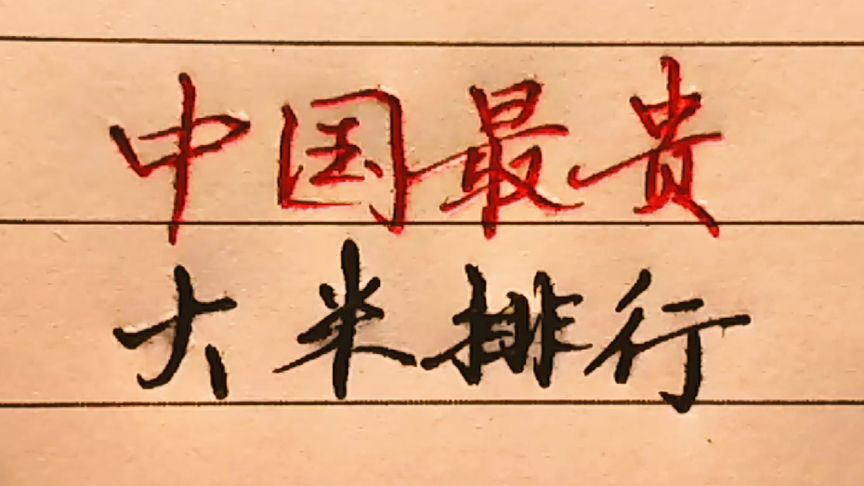 中国最贵
大米排行